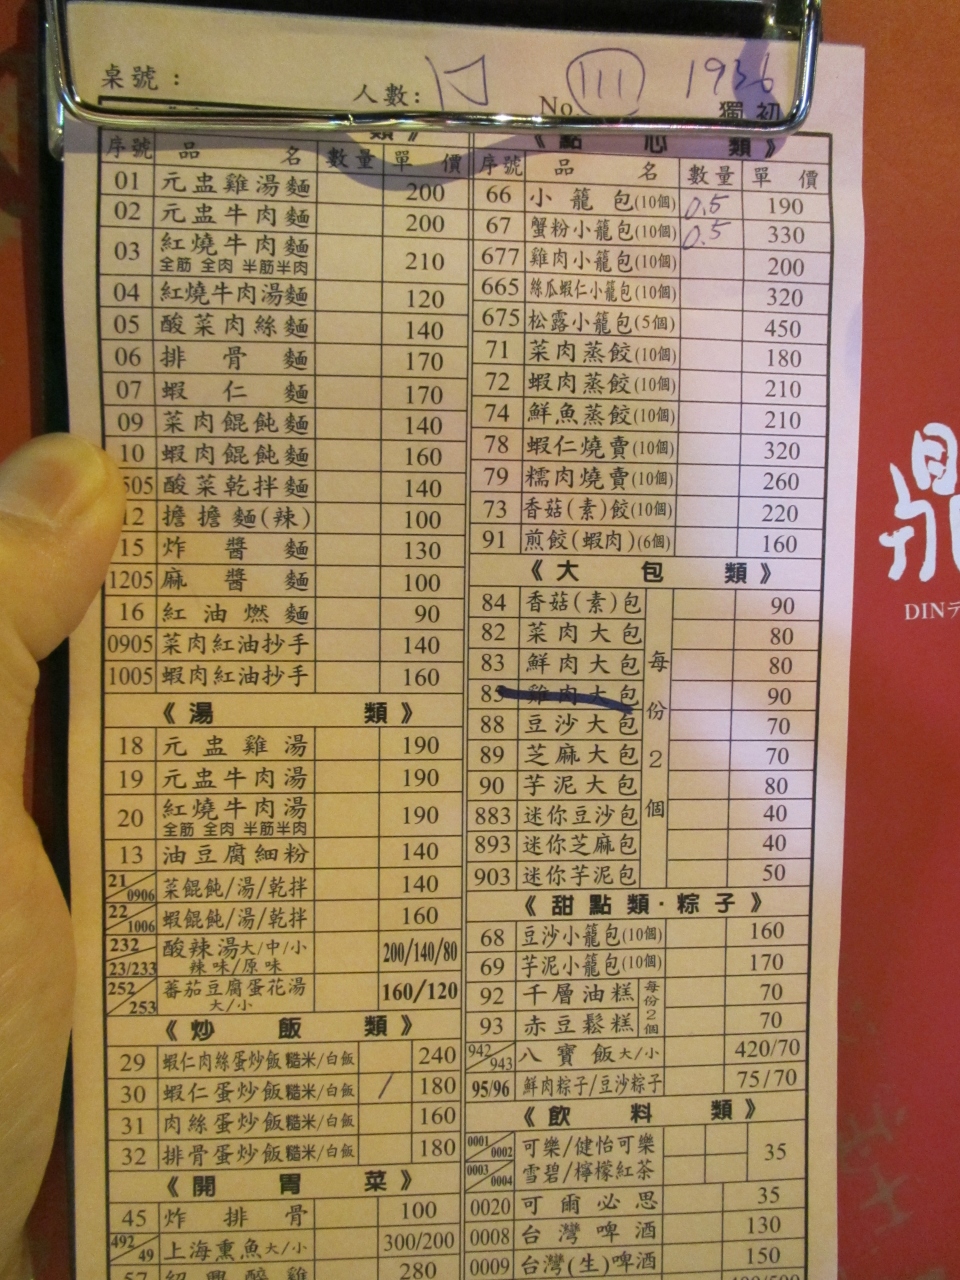 桌號：
人數：
No. 111 1936
獨 初
類》
序號 品名 數量 單價
01 元盅雞湯麵 200
02 元盅牛肉麵 200
03 紅燒牛肉麵 210
全筋 全肉 半筋半肉
04 紅燒牛肉湯麵 120
05 酸菜肉絲麵 140
06 排骨麵 170
07 蝦仁麵 170
09 菜肉餛飩麵 140
10 蝦肉餛飩麵 160
505 酸菜乾拌麵 140
12 擔擔麵(辣) 100
15 炸醬麵 130
1205 麻醬麵 100
16 紅油燃麵 90
0905 菜肉紅油抄手 140
1005 蝦肉紅油抄手 160
《湯類》
18 元盅雞湯 190
19 元盅牛肉湯 190
20 紅燒牛肉湯 190
全筋 全肉 半筋半肉
13 油豆腐細粉 140
21/0906 菜餛飩/湯/乾拌 140
22/1006 蝦餛飩/湯/乾拌 160
232 酸辣湯大/中/小 200/140/80
23/233 辣味/原味
252/253 蕃茄豆腐蛋花湯 160/120
大/小
《炒飯類》
29 蝦仁肉絲蛋炒飯糙米/白飯 240
30 蝦仁蛋炒飯糙米/白飯 / 180
31 肉絲蛋炒飯糙米/白飯 160
32 排骨蛋炒飯糙米/白飯 180
《開胃菜》
45 炸排骨 100
492/49 上海熏魚大/小 300/200
57 紹興醉雞 280
《點心類》
序號 品名 數量 單價
66 小籠包(10個) 0.5 190
67 蟹粉小籠包(10個) 0.5 330
677 雞肉小籠包(10個) 200
665 絲瓜蝦仁小籠包(10個) 320
675 松露小籠包(5個) 450
71 菜肉蒸餃(10個) 180
72 蝦肉蒸餃(10個) 210
74 鮮魚蒸餃(10個) 210
78 蝦仁燒賣(10個) 320
79 糯肉燒賣(10個) 260
73 香菇(素)餃(10個) 220
91 煎餃(蝦肉)(6個) 160
《大包類》
每份2個
84 香菇(素)包 90
82 菜肉大包 80
83 鮮肉大包 80
85 雞肉大包 90
88 豆沙大包 70
89 芝麻大包 70
90 芋泥大包 80
883 迷你豆沙包 40
893 迷你芝麻包 40
903 迷你芋泥包 50
《甜點類·粽子》
68 豆沙小籠包(10個) 160
69 芋泥小籠包(10個) 170
每份2個
92 千層油糕 70
93 赤豆鬆糕 70
942/943 八寶飯大/小 420/70
95/96 鮮肉粽子/豆沙粽子 75/70
《飲料類》
0001/0002 可樂/健怡可樂 35
0003/0004 雪碧/檸檬紅茶
0020 可爾必思 35
0008 台灣啤酒 130
0009 台灣(生)啤酒 150
鼎
DIN